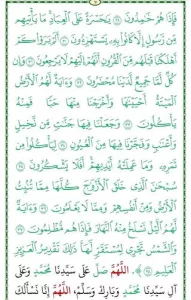 فَإِذَا هُمْ خَٰمِدُونَ ۝ يَٰحَسْرَةً عَلَى ٱلْعِبَادِ مَا يَأْتِيهِم
مِّن رَّسُولٍ إِلَّا كَانُوا۟ بِهِۦ يَسْتَهْزِءُونَ ۝ أَلَمْ يَرَوْا۟ كَمْ
أَهْلَكْنَا قَبْلَهُم مِّنَ ٱلْقُرُونِ أَنَّهُمْ إِلَيْهِمْ لَا يَرْجِعُونَ ۝ وَإِن
كُلٌّ لَّمَّا جَمِيعٌ لَّدَيْنَا مُحْضَرُونَ ۝ وَءَايَةٌ لَّهُمُ ٱلْأَرْضُ
ٱلْمَيْتَةُ أَحْيَيْنَٰهَا وَأَخْرَجْنَا مِنْهَا حَبًّا فَمِنْهُ
يَأْكُلُونَ ۝ وَجَعَلْنَا فِيهَا جَنَّٰتٍ مِّن نَّخِيلٍ
وَأَعْنَٰبٍ وَفَجَّرْنَا فِيهَا مِنَ ٱلْعُيُونِ ۝ لِيَأْكُلُوا۟ مِن
ثَمَرِهِۦ وَمَا عَمِلَتْهُ أَيْدِيهِمْ أَفَلَا يَشْكُرُونَ ۝
سُبْحَٰنَ ٱلَّذِى خَلَقَ ٱلْأَزْوَٰجَ كُلَّهَا مِمَّا تُنۢبِتُ
ٱلْأَرْضُ وَمِنْ أَنفُسِهِمْ وَمِمَّا لَا يَعْلَمُونَ ۝ وَءَايَةٌ
لَّهُمُ ٱلَّيْلُ نَسْلَخُ مِنْهُ ٱلنَّهَارَ فَإِذَا هُم مُّظْلِمُونَ ۝
وَٱلشَّمْسُ تَجْرِى لِمُسْتَقَرٍّ لَّهَا ذَٰلِكَ تَقْدِيرُ ٱلْعَزِيزِ
ٱلْعَلِيمِ ۝ اَللّٰهُمَّ صَلِّ عَلَى سَيِّدِنَا مُحَمَّدٍ وَعَلَى
آلِ سَيِّدِنَا مُحَمَّدٍ وَبَارِكْ وَسَلِّمْ، اَللّٰهُمَّ إِنَّا نَسْأَلُكَ